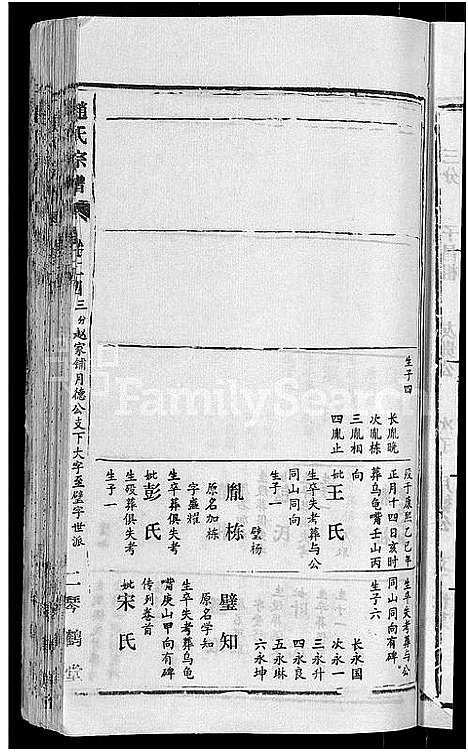 生子四
长胤晚
次胤栋
三胤相
四胤止
殁于康熙乙巳年
正月十四日亥时
葬乌龟嘴壬山丙
向
妣王氏
生卒失考葬与公
同山同向
生子一
璧杨
胤栋
原名加栋
字盛耀
生卒葬俱失考
妣彭氏
生殁葬俱失考
生子一
生卒失考葬与公
同山同向有碑
生子六
长永国
次永一
三永升
四永良
五永琳
六永坤
璧知
原名学知
生卒失考葬乌龟
嘴庚山甲向有碑
传列卷首
妣宋氏
赵氏宗谱
三分赵家铺月德公支下大字至璧字世派
二琴鹤堂
FamilySearch